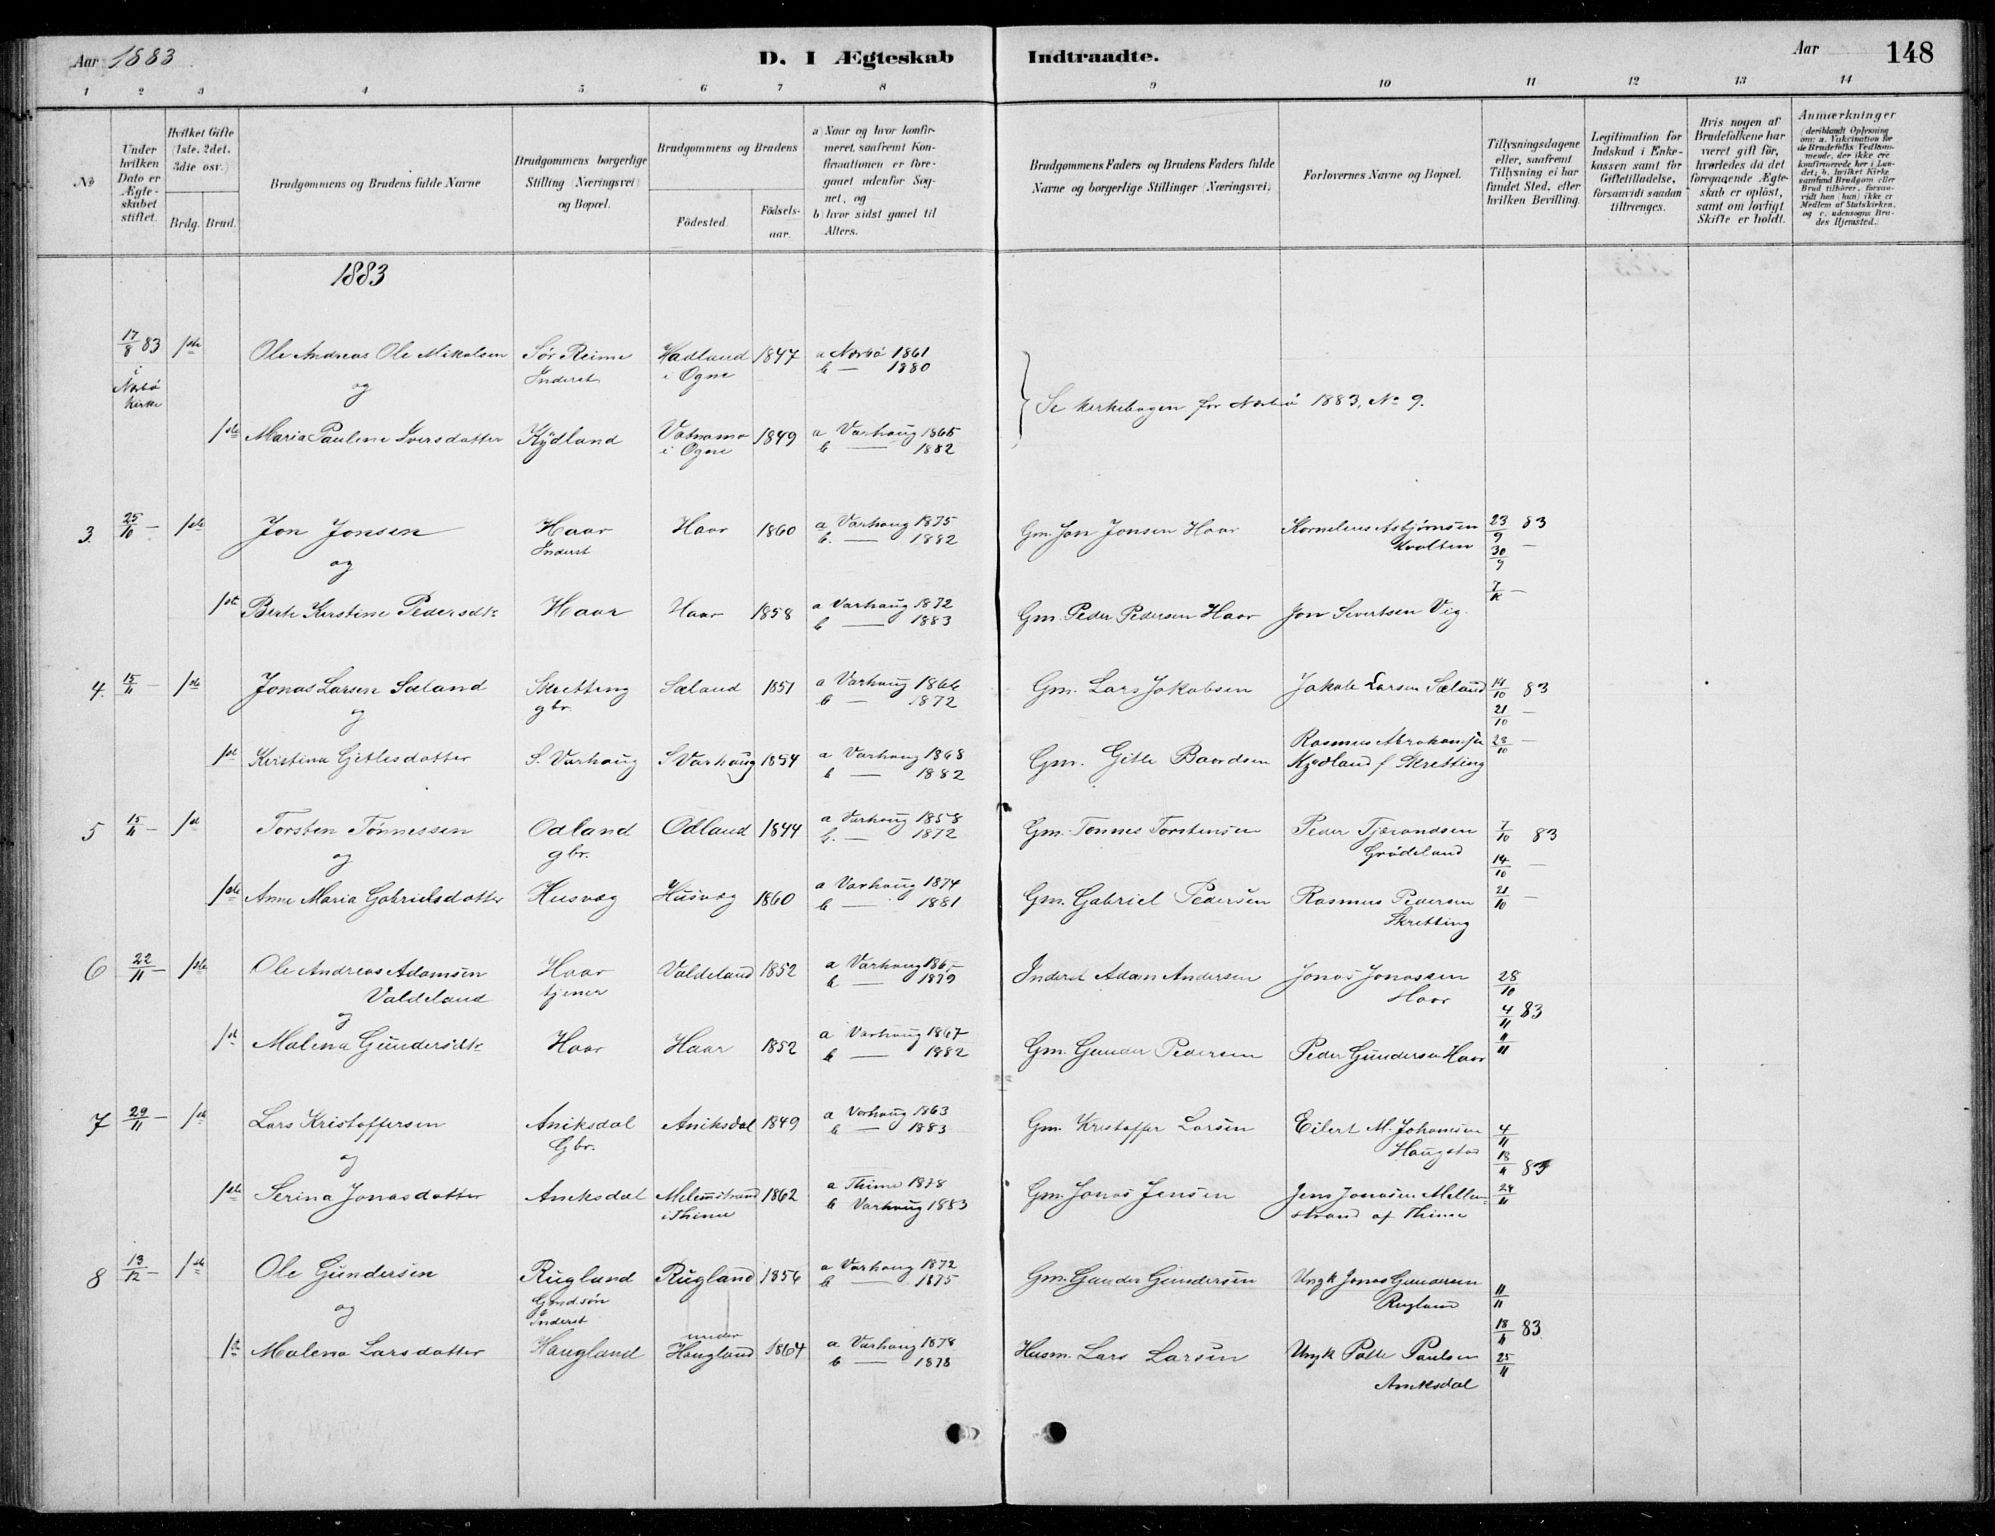 Aar 1883.
D. I Ægteskab Indtraadte.
Aar 148
1 2 3 4 5 6 7 8 9 10 11 12 13 14
No
Under hvilken Dato er Ægteskabet stiftet.
Hvilket Gifte (1ste, 2det, 3die osv.)
Brdg. Brud.
Brudgommens og Brudens fulde Navne
Brudgommens borgerlige Stilling (Næringsvei) og Bopæl.
Brudgommens og Brudens
Fødested. Fødselsaar.
a) Naar og hvor konfirmeret, saafremt Konfirmationen er foregaaet udenfor Sognet, og
b) hvor sidst gaaet til Alters.
Brudgommens Faders og Brudens Faders fulde Navne og borgerlige Stillinger (Næringsvei)
Forlovernes Navne og Bopæl.
Tillysningsdagene eller, saafremt Tillysning ei har fundet Sted, efter hvilken Bevilling.
Legitimation for Indskud i Enkekassen samt for Giftetilladelse, forsaavidt saadan tiltrænges.
Hvis nogen af Brudefolkene har været gift før, hvorledes da det foregaaende Ægteskab er opløst, samt om lovligt Skifte er holdt.
Anmærkninger
(deriblandt Oplysning om: a. Vaccination for de Brudefolks Vedkommende, der ikke ere konfirmerede her i Landet; b. hvilket Kirkesamfund Brudgom eller Brud tilhører, forsaavidt han (hun) ikke er Medlem af Statskirken, og c. udensogns Brudes Hjemsted.)
1883
17/8 83 1ste Ole Andreas Ole Mikalsen Sør Reime Hadland 1847 a Nærbø 1861
i Nærbø Kirke og Inderst i Ogne b — 1880
Se kirkebogen for Nærbø 1883, No 9.
1ste Maria Pauline Iversdatter Kydland Vatnamo 1849 a Varhaug 1865
i Ogne b — 1882
3. 25/10 — 1ste Jon Jonsen Haar Haar 1860 a Varhaug 1875 Gm. Jon Jonsen Haar Kornelius Asbjørnsen 23/9 83
og Inderst b. — 1882 30/9 —
1ste Berte Kirstine Pedersdtr Haar Haar 1858 a Varhaug 1872 Gm. Peder Pedersen Haar Jon Sivertsen Vig. 7/10 —
b — 1883
4. 15/11 — 1ste Jonas Larsen Sæland Skretting Sæland 1851 a Varhaug 1866 Gm. Lars Jakobsen Jakob Larsen Sæland 14/10 83
og gbr. b — 1872 21/10 —
1ste Kirstina Gitlesdatter S. Varhaug S Varhaug 1854 a Varhaug 1868 Gm. Gitle Baardsen Rasmus Abrahamsen 28/10 —
b — 1882 Skretting
5 15/11 — 1ste Torsten Tønnessen Odland Odland 1844 a Varhaug 1858 Gm. Tønnes Torstensen Peder Tjærandsen 7/10 83
og gbr. b. — 1872 Grødeland 14/10 —
1ste Anne Maria Gabrielsdatter Husvæg Husvæg 1860 a Varhaug 1874 Gm. Gabriel Pedersen Rasmus Pedersen 21/10 —
b — 1881 Skretting
6 22/11 — 1ste Ole Andreas Adamsen Haar Valdeland 1852 a Varhaug Inderst Adam Andersen Jonas Jonassen 28/10
Valdeland tjener b — 1879 Haar
og 4/11 83
1ste Malena Gundersdtr Haar Haar 1852 a Varhaug 1867 Gm. Gunder Pedersen Peder Gundersen Haar 11/11
b — 1882
7 29/11 — 1ste Lars Kristoffersen Aniksdal Aniksdal 1849 a Varhaug 1863 Gm. Kristoffer Larsen Eilert M. Johansen 4/11
og Gbr. b — 1883 Haugstad 18/11 83
1ste Serina Jonasdatter Aniksdal Melemstrand 1862 a Thime 1878 Gm. Jonas Jensen Jens Jonasen Mellem- 24/11
i Thime b Varhaug 1883 strand af Thime
8 13/12 — 1ste Ole Gundersen Rugland Rugland 1856 a Varhaug 1872 Gm. Gunder Gundersen Ungk Jonas Gundersen 11/11
og Gmd.søn b — 1875 Rugland
Inderst 18/11 83
1ste Malena Larsdatter Haugland under Haugland 1864 a Varhaug 1878 Husm. Lars Larsen Ungk Paulsen 25/11
b — 1878 Aniksdal